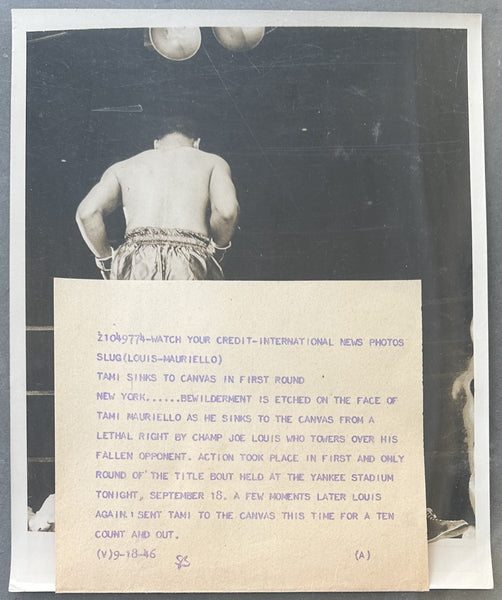 Z1049774-WATCH YOUR CREDIT-INTERNATIONAL NEWS PHOTOS
SLUG(LOUIS-MAURIELLO)
TAMI SINKS TO CANVAS IN FIRST ROUND
NEW YORK......BEWILDERMENT IS ETCHED ON THE FACE OF
TAMI MAURIELLO AS HE SINKS TO THE CANVAS FROM A
LETHAL RIGHT BY CHAMP JOE LOUIS WHO TOWERS OVER HIS
FALLEN OPPONENT. ACTION TOOK PLACE IN FIRST AND ONLY
ROUND OF THE TITLE BOUT HELD AT THE YANKEE STADIUM
TONIGHT, SEPTEMBER 18. A FEW MOMENTS LATER LOUIS
AGAIN SENT TAMI TO THE CANVAS THIS TIME FOR A TEN
COUNT AND OUT.
(V)9-18-46 (A)